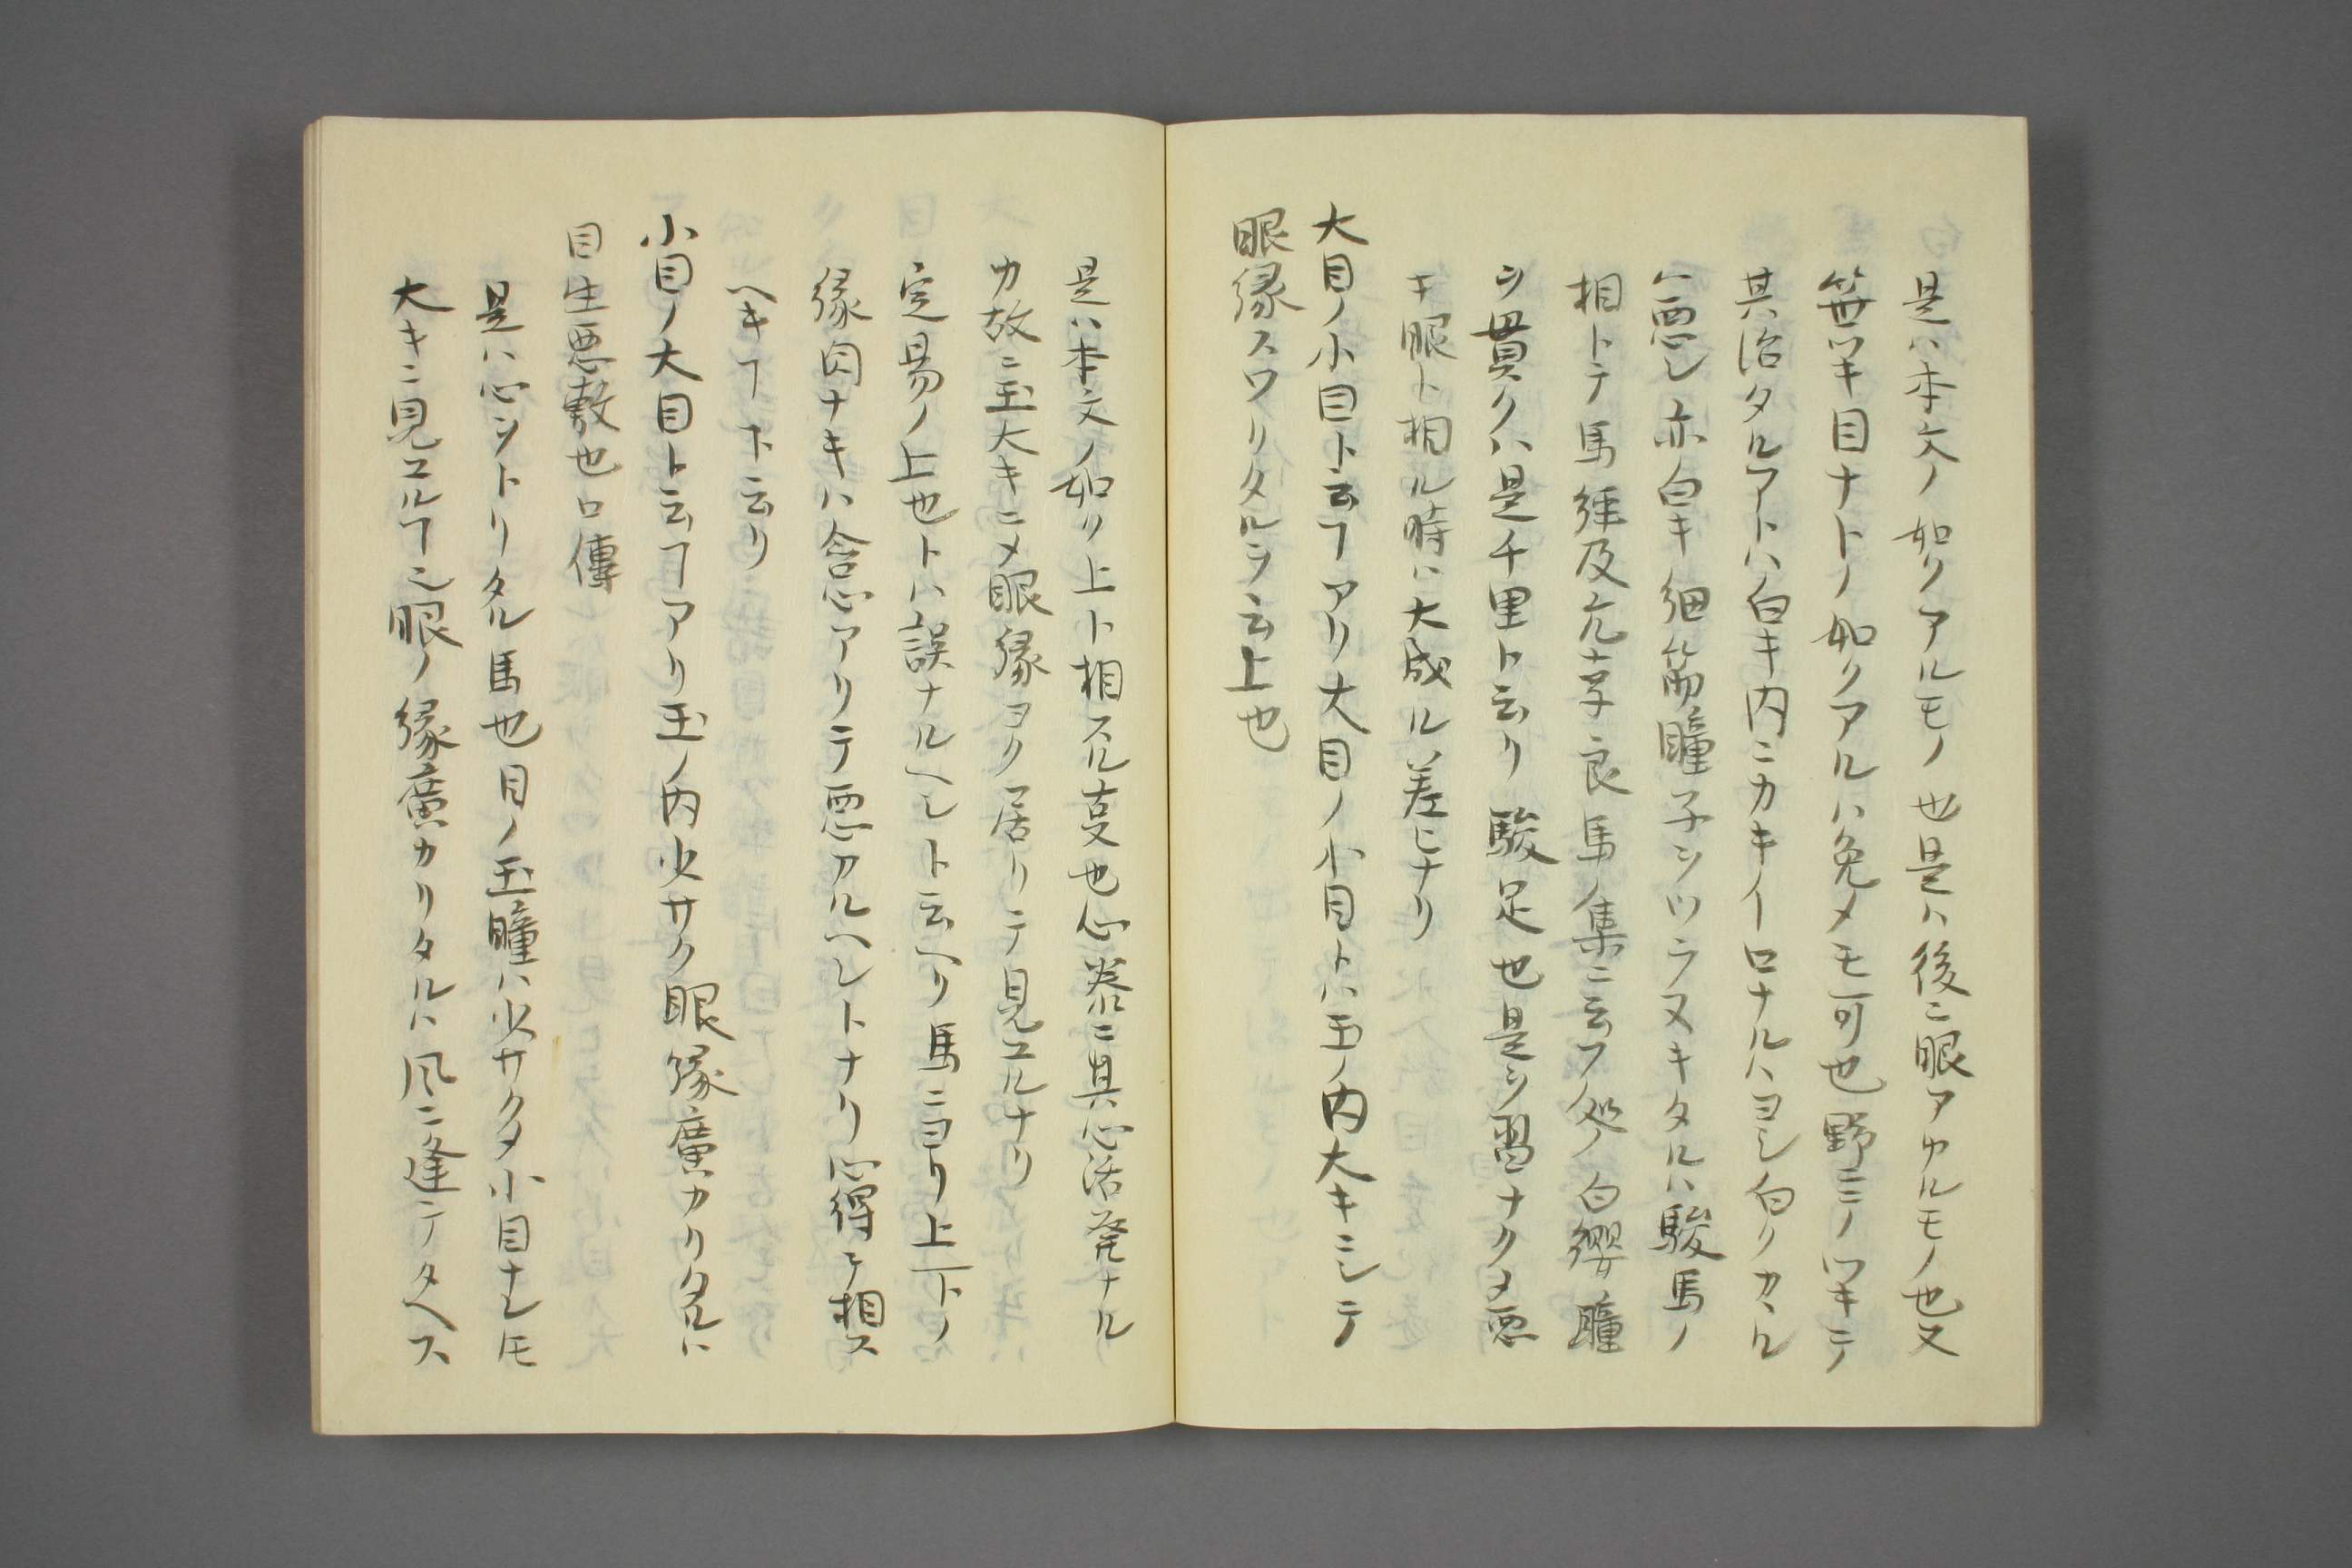 是ハ本文ノ如クアルモノ也是ハ後ニ眼アカルモノ也又
笹ツキ目ナトノ如クアルハ免メモ可也野ニノツキニテ
其治タルアトハ白キ内ニカキイロナルハヨシ白クカヽル
ハ悪シ亦白キ細筋瞳子ヲツラヌキタルハ駿馬ノ
相トテ馬経及元亨良馬集ニ云フ処ノ白纓瞳
ヲ貫クハ是千里ト云リ駿足也是ヲ習ナクメ悪
キ眼ト相ル時ハ大成ル差ヒナリ
大目ノ小目ト云フアリ大目ノ小目トハ玉ノ内大キニシテ
眼縁スワリタルヲ云上也
是ハ本文ノ如ク上ト相スル叓也心泰ニ其心活発ナル
カ故ニ玉大キニメ眼縁ヨク居リテ見エルナリ
定易ノ上也トハ誤ナルヘシト云ヘリ馬ニヨリ上下ノ
縁肉ナキハ含心アリテ悪アルヘシトナリ心得テ相ス
ヘキフト云リ
小目ノ大目ト云フアリ玉ノ内少サク眼縁廣カリタルハ
目生悪敷也口傳
是ハ心ヲトリタル馬也目ノ玉瞳ハ少サクメ小目ナレ𪜈
大キニ見エルフ也眼ノ縁廣カリタルハ風ニ逢テタヘス